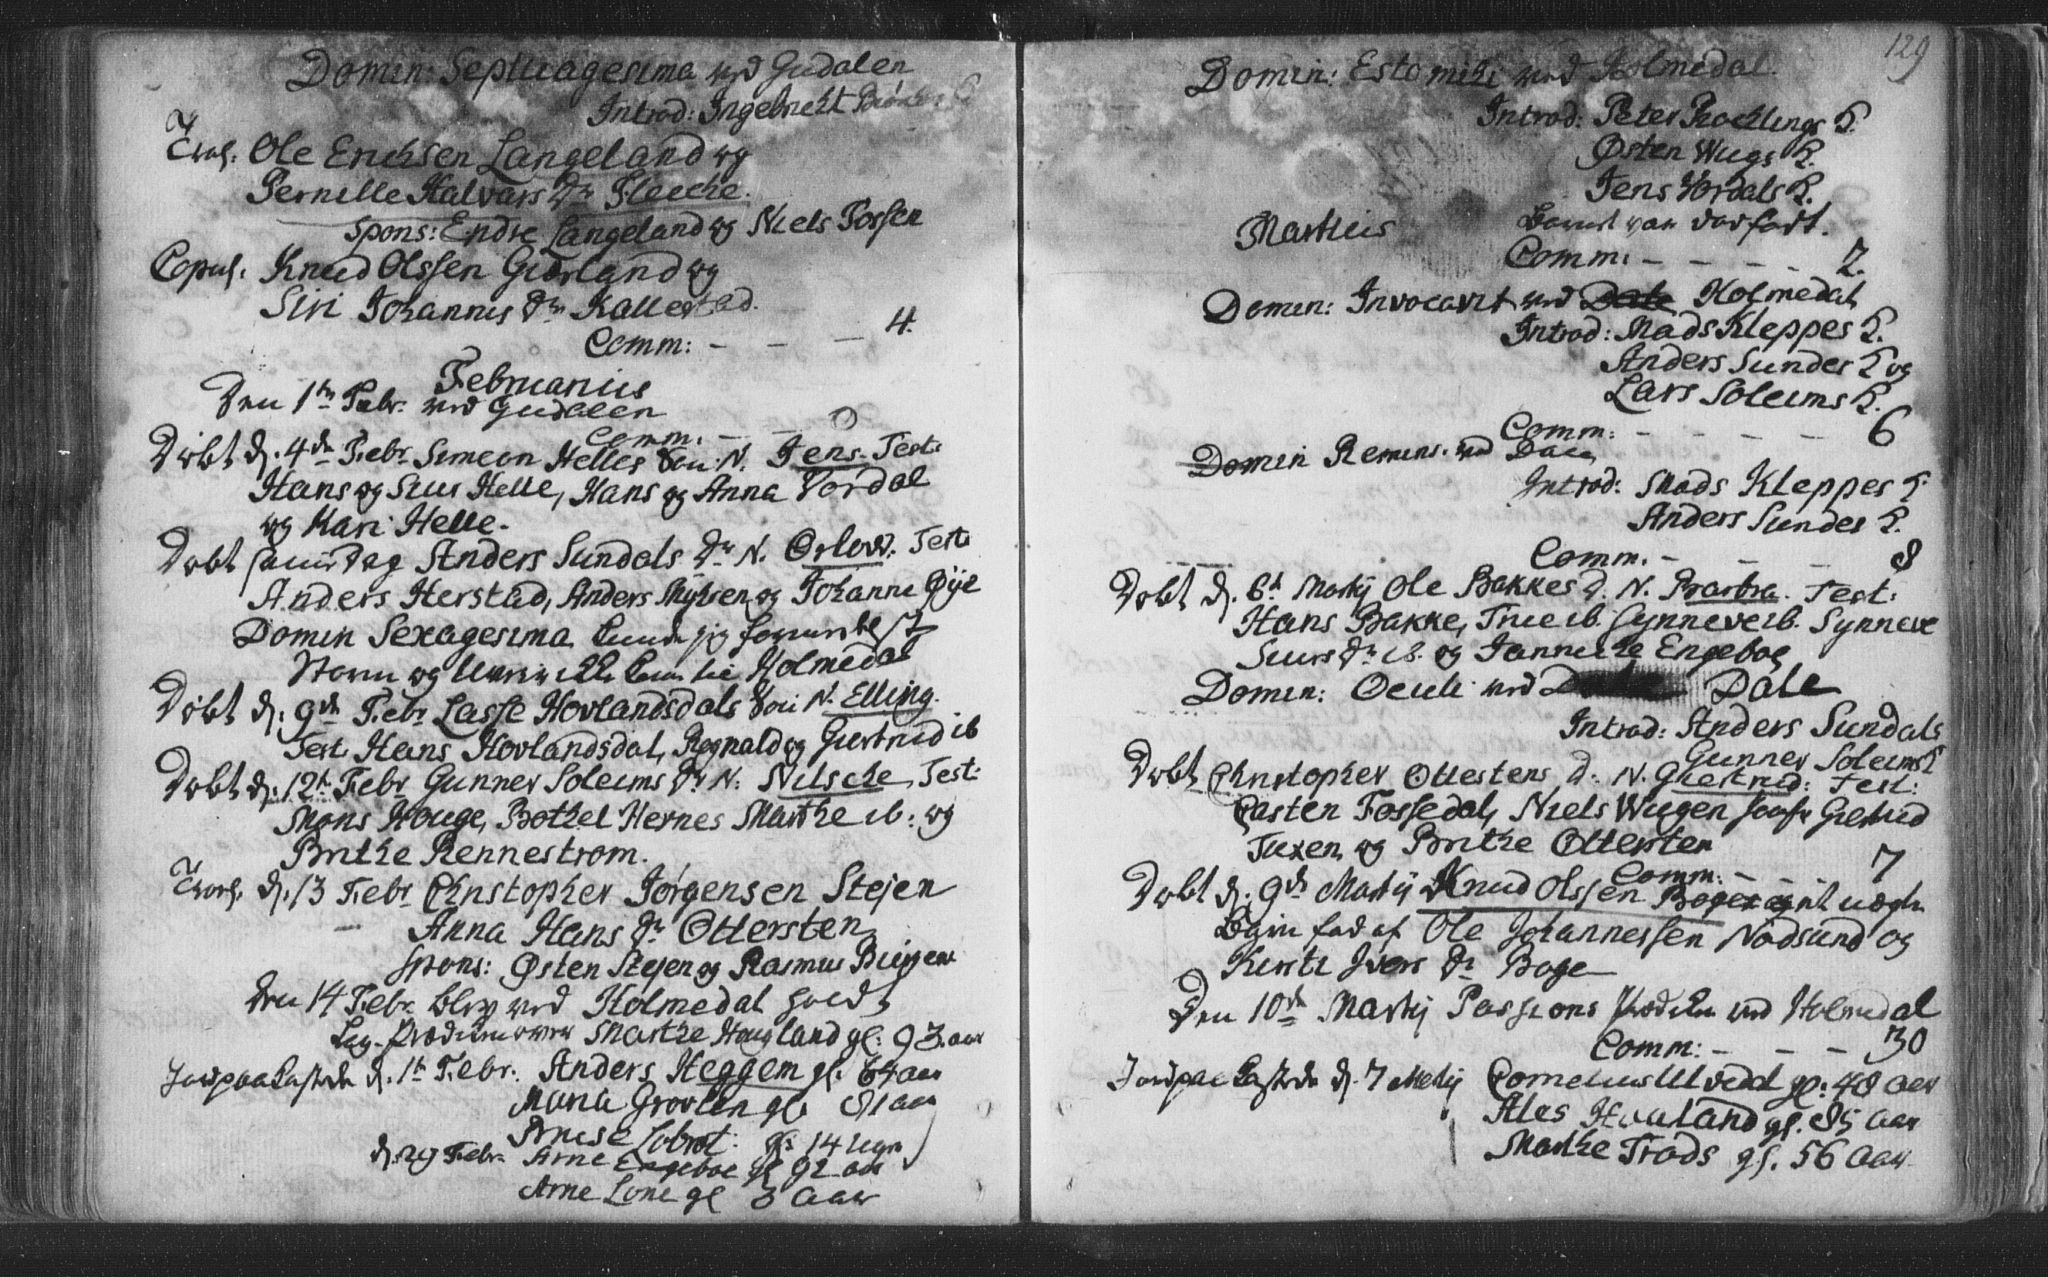 Domin: Septuagesima ved Gudalen
Introd: Ingebricht
Trol: Ole Erichsen Langeland og
Pernille Halvars Dr Fleche.
Spons: Endre Langeland og Niels Fossen
Copul: Knud Olssen Giørland og
Siri Johannis Dr Kallestad.
Comm: - - - 4.
Februarius
Den 1te Febr. ved Gudalen
Comm. - - 0
Døbt d. 4de Febr Simeon Helles Søn N. Jens. Test:
Hans og Siur Helle, Hans og Anna Vordal
og Kari Helle.
Døbt samme Dag Anders Sundals Dr N. Test:
Anders Herstad, Anders og Johanne Øye
Domin Sexagesima kunde jeg formedelst
Storm og komme til Holmedal
Døbt d: 9de Febr Lasse Hovlandsdals Søn N. Elling.
Test: Hans Hovlandsdal, Regnald og Giertrud ib
Døbt d: 12te Febr Gunner Soleims Dr N: Nilsche, Test:
Mons Houge, Bothel Hernes Marthe ib: og
Brithe Rennestrom.
Trol. d. 13 Febr Christopher Jørgensen Stejen
Anna Hans Dr Ottersten
Spons: Østen Stejen og Rasmus
Den 14 Febr. blev ved Holmedal holdt
Lig-Prædiken over Marthe Hougland gl: 93 aar
Jordpaakastede d. 1te Febr. Anders Heggem gl. 64 aar
Maria Grovlen gl. 81 aar
gl: 14 uger
d. 29 Febr. Arne Engeboe gl 92 aar
Arne Lone gl 3 Aar
129
Domin: Estomihi ved Holmedal.
Introd: Peter K.
Østen K.
Jens Vordals K.
Barnet var
Martius
Comm: - - - - 2.
Domin: Invocavit ved Dale Holmedal
Introd: Mads Kleppes K.
Anders Sundes K og
Lars Soleims K.
Comm: - - - - 6
Domin Remins. ved Dale
Introd: Mads Kleppes K
Anders Sundes K.
Comm. - - - 8
Døbt d. 6te Martij Ole Bakkes D. N. Barbra. Test:
Hans Bakke, ib. Synneve ib. Synneve
Siurs Dr ib. og Janniche Engeboe
Domin: Oculi ved Dale
Introd: Anders Sundals
Gunner Soleims K
Døbt Christopher Otterstens D. N. Giertrud: Test:
Carsten Fossedal, Niels Wugen Jomfr Giertrud
Tuxen og Brithe Ottersten
Comm: - - - 7
Døbt d: 9de Martij Knud Olssen Boge
af Ole Johannessen Nodsund og
Kirsti Ivers Dr Boge
Den 10de Martij Passions Prædiken ved Holmedal
Comm: - - - 30
Jordpaakastede d. 7 Martij Cornelius Ulvedal gl: 48 Aar
Ales gl. 85 aar
Marthe Trads gl. 56 Aar